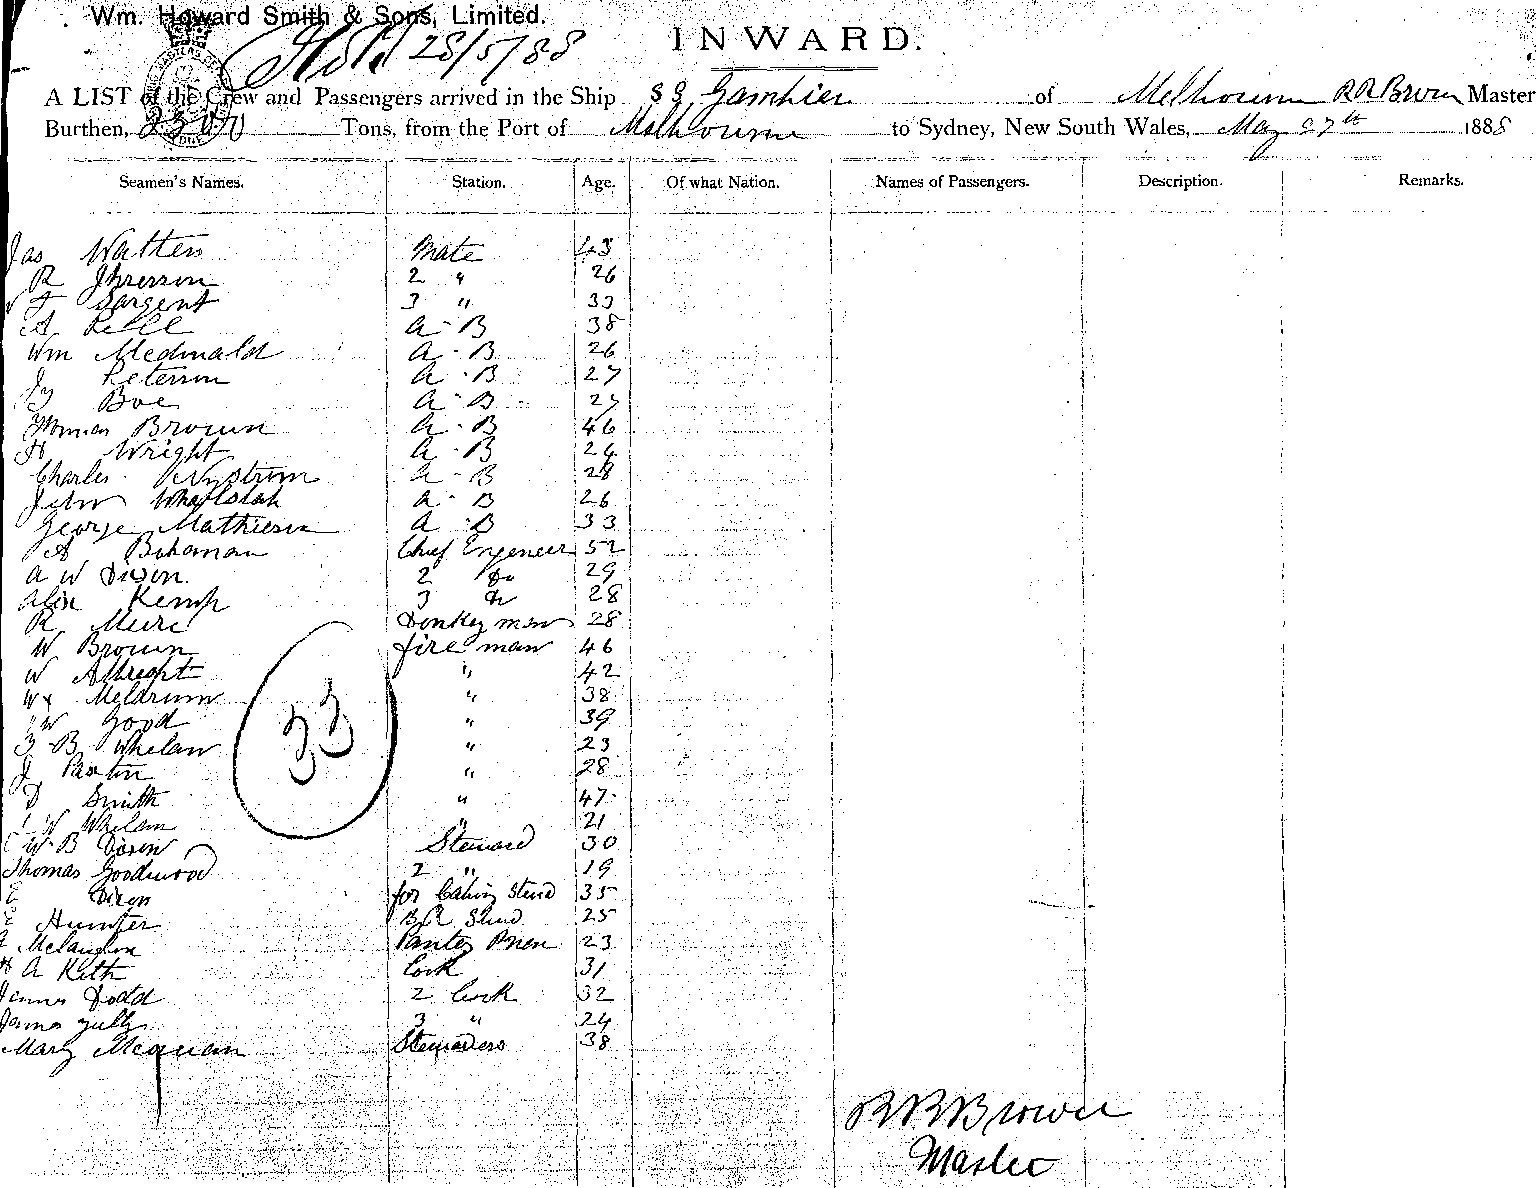 Wm. Howard Smith & Sons, Limited.
28/5/88
INWARD.
A LIST of the Crew and Passengers arrived in the Ship SS Gambier of Melbourne RR Brown Master
Burthen, Tons, from the Port of Melbourne to Sydney, New South Wales, May 27th 1888
Seamen's Names. Station. Age. Of what Nation. Names of Passengers. Description. Remarks.
Jas Walten Mate 43
R 2 " 26
Sargent 3 " 33
A A-B 38
Wm A-B 26
Peterson A-B 27
Boe A-B 27
Brown A-B 46
H Wright A-B 24
Charles Nystrom A-B 28
John A-B 26
George Mathieson A-B 33
A Chief Engeneer 52
A W Dixon. 2 Do 29
Alex Kemp 3 Do 28
R Donkey man 28
W Brown fire man 46
W " 42
Meldrum " 38
W Good " 39
B Whelan " 23
J Paxton " 28
D Smith " 47
W Whelan " 21
W. B Dixon Steward 30
Thomas Goodwood 2 " 19
Dixon for Cabin Steud 35
Hunter B R Steud 25
23
A Keth Cook 31
James Dodd 2 Cook 32
James 3 " 24
Mary 38
33
RR Brown
Master